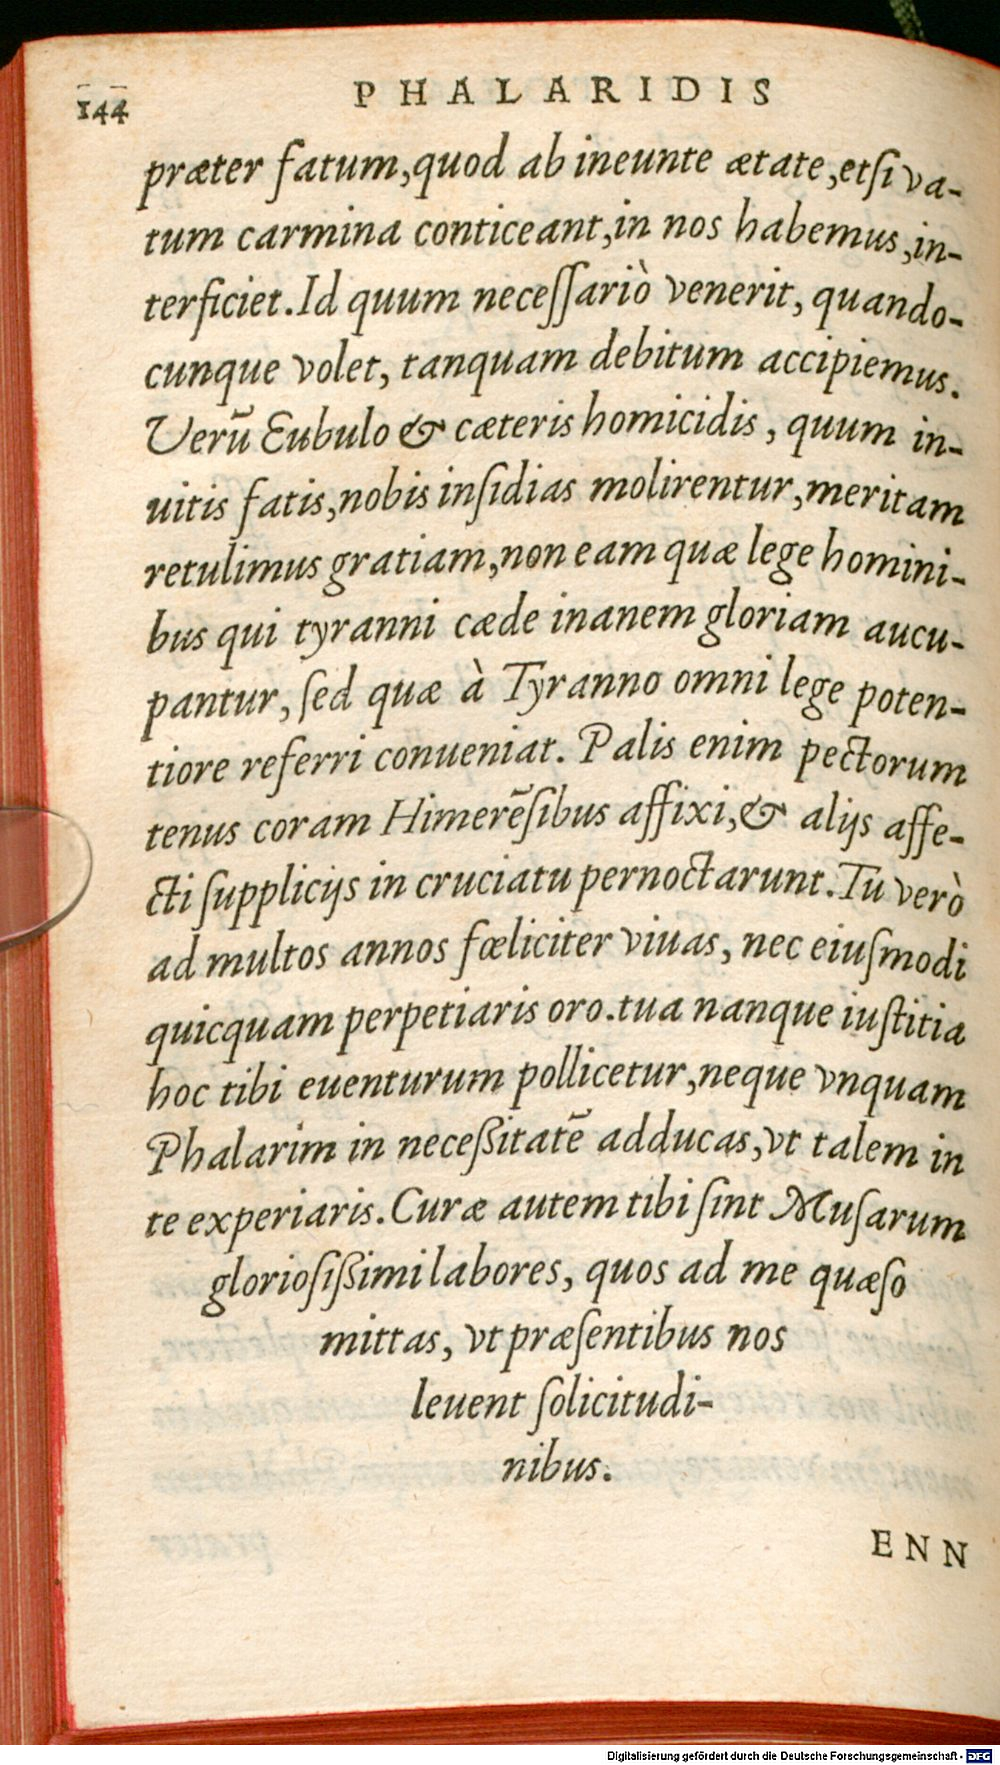 144
PHALARIDIS
præter fatum,quod ab ineunte ætate,etſi va-
tum carmina conticeant,in nos habemus,in-
terficiet.Id quum neceſſariò venerit, quando-
cunque volet, tanquam debitum accipiemus.
Verū Eubulo & cæteris homicidis, quum in-
uitis fatis,nobis inſidias molirentur,meritam
retulimus gratiam,non eam quæ lege homini-
bus qui tyranni cæde inanem gloriam aucu-
pantur, ſed quæ à Tyranno omni lege poten-
tiore referri conueniat. Palis enim pectorum
tenus coram Himerēſibus affixi,& alijs affe-
cti ſupplicijs in cruciatu pernoctarunt.Tu verò
ad multos annos fœliciter viuas, nec eiuſmodi
quicquam perpetiaris oro.tua nanque iuſtitia
hoc tibi euenturum pollicetur,neque vnquam
Phalarim in neceßitatē adducas,vt talem in
te experiaris.Curæ autem tibi ſint Muſarum
glorioſißimi labores, quos ad me quæſo
mittas, vt præſentibus nos
leuent ſolicitudi-
nibus.
ENN
Digitalisierung gefördert durch die Deutsche Forschungsgemeinschaft - DFG